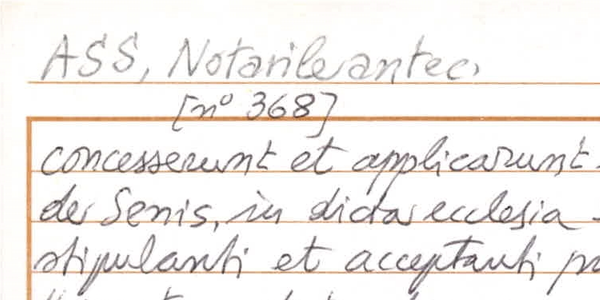 ASS, Notarile antec.
[nº 368]
concesserunt et applicarunt
de Senis, in dicta ecclesia
stipulanti et acceptanti